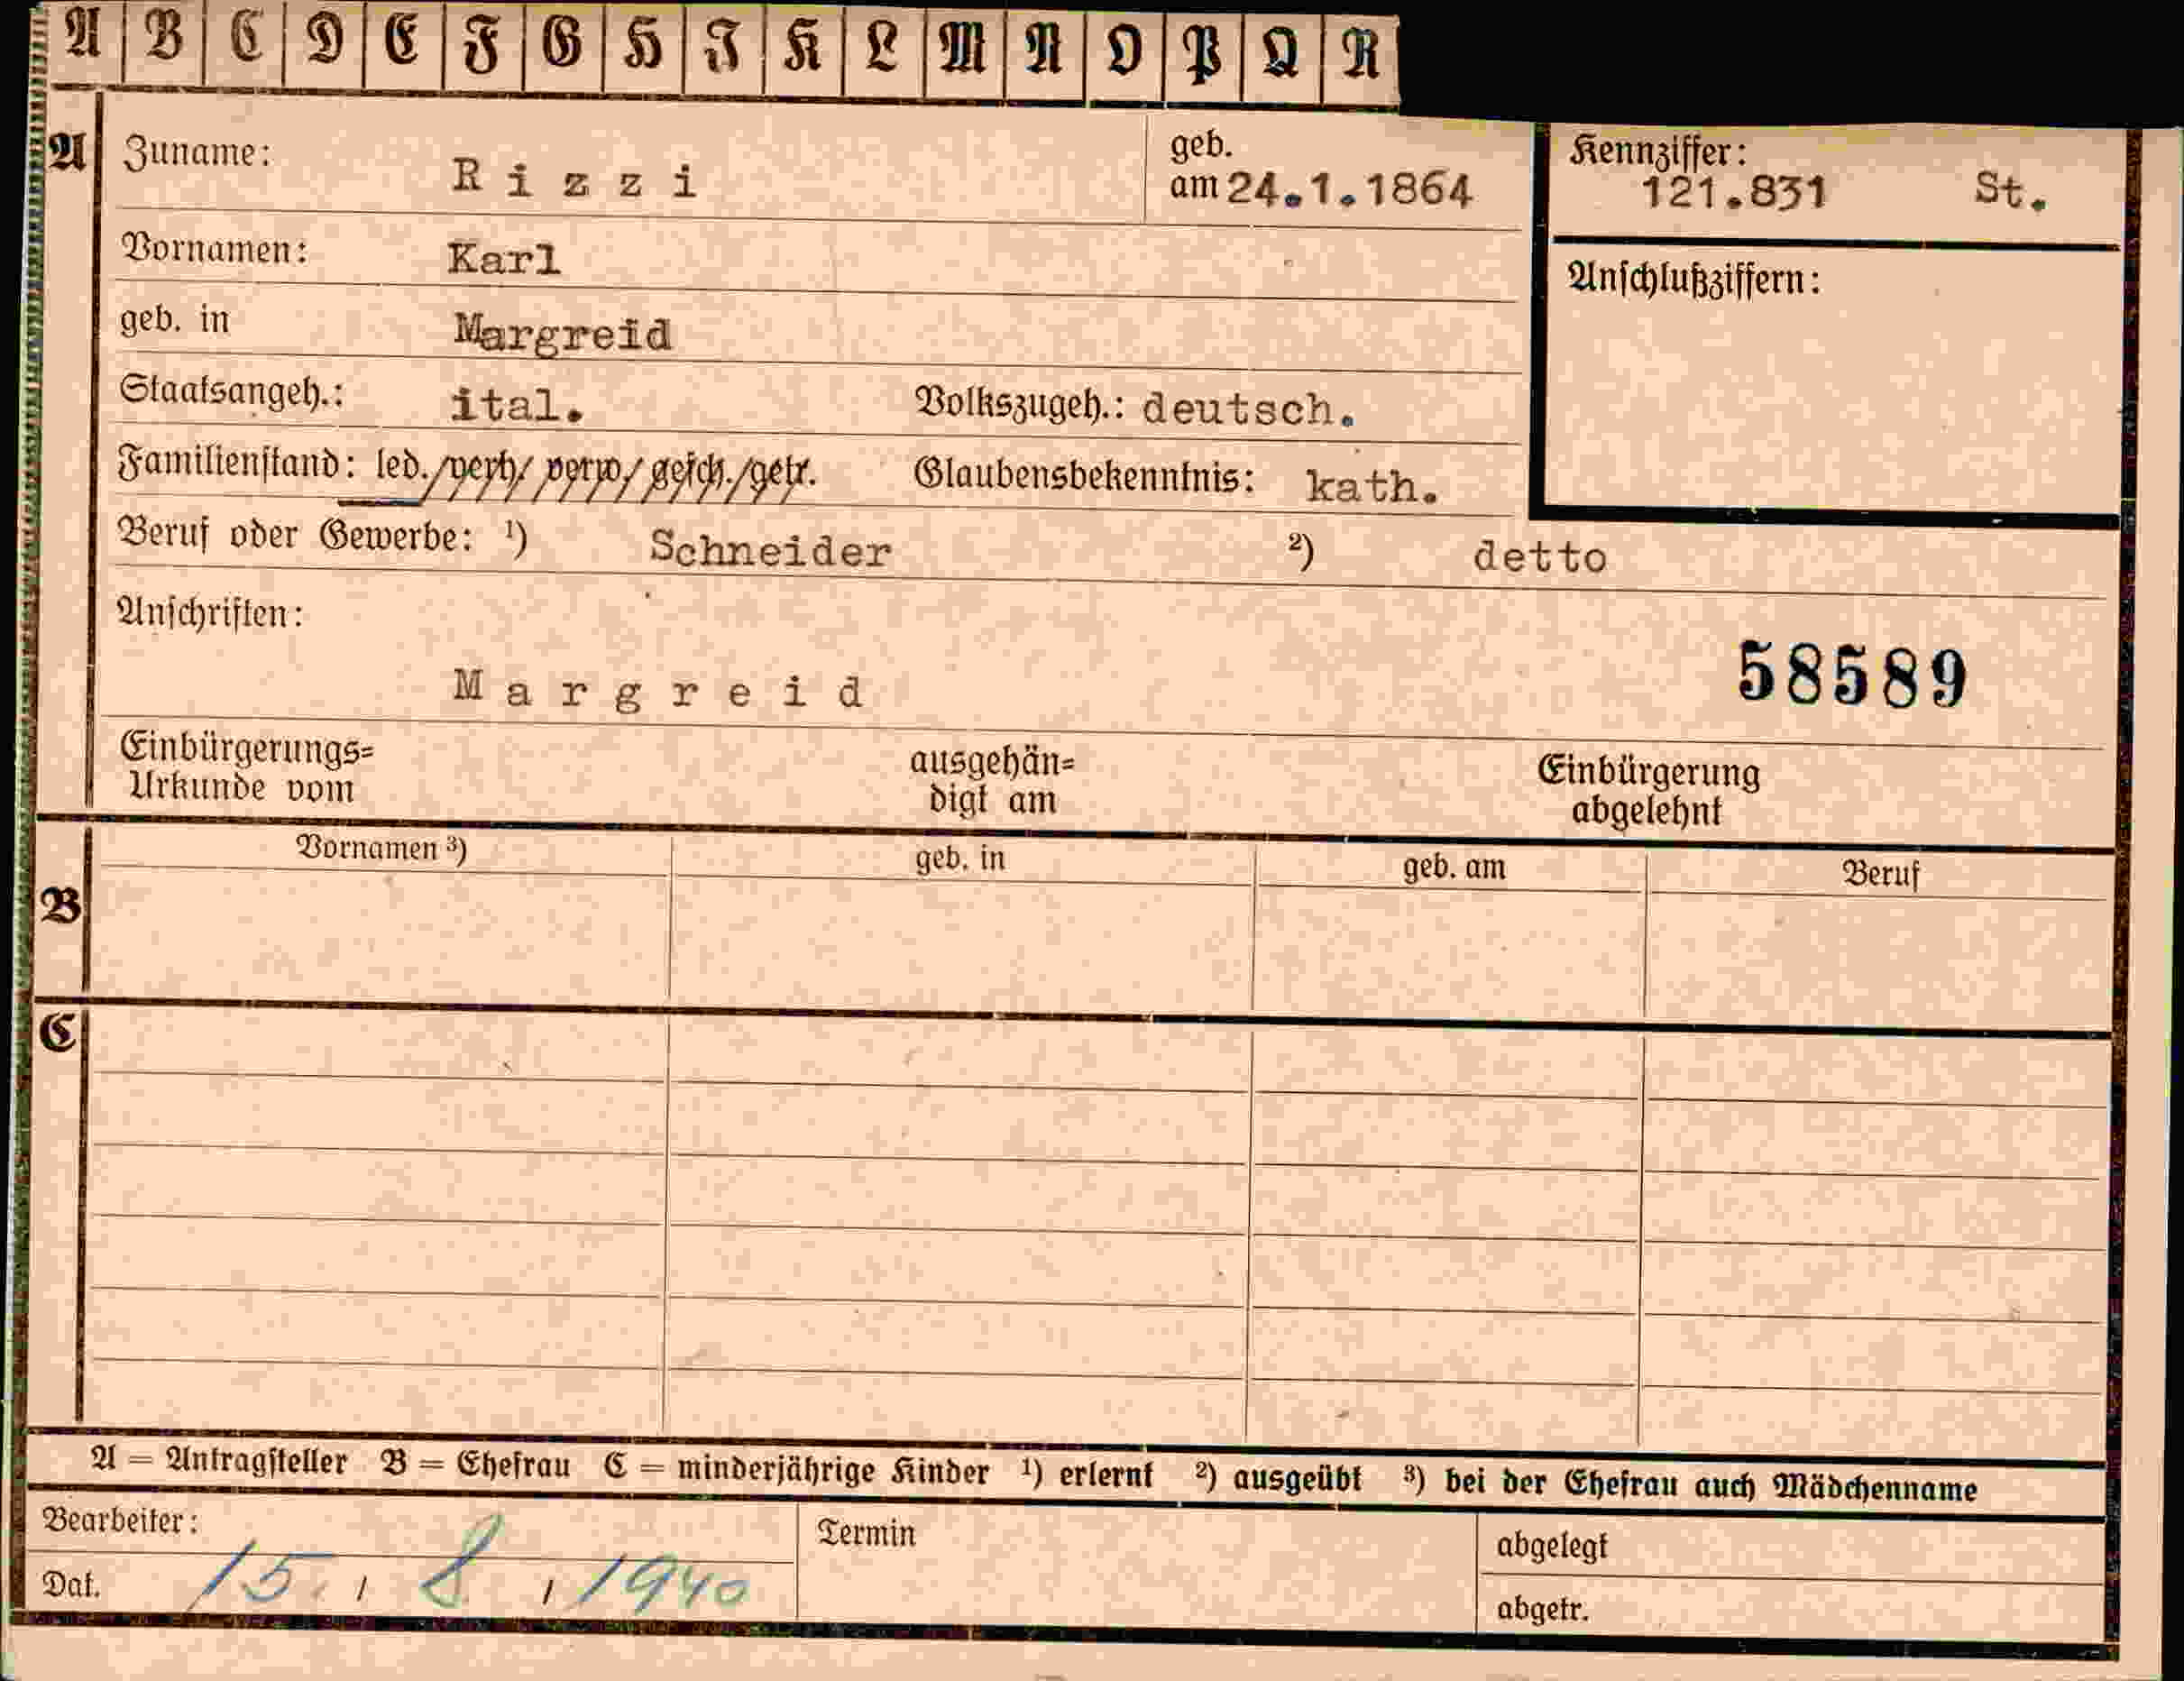 A B C D E F G H I K L M N O P Q R
A Zuname: Rizzi geb. am 24.1.1864 Kennziffer: 121.831 St.
Vornamen: Karl
Anschlußziffern:
geb. in Margreid
Staatsangeh.: ital. Volkszugeh.: deutsch.
Familienstand: led./verh/ verw/ gesch./getr. Glaubensbekenntnis: kath.
Beruf oder Gewerbe: ¹) Schneider ²) detto
Anschriften:
Margreid 58589
Einbürgerungs= ausgehän= Einbürgerung
Urkunde vom digt am abgelehnt
Vornamen ³) geb. in geb. am Beruf
B
C
A = Antragsteller B = Ehefrau C = minderjährige Kinder ¹) erlernt ²) ausgeübt ³) bei der Ehefrau auch Mädchenname
Bearbeiter: Termin abgelegt
Dat. 15. / 8. / 1940 abgetr.